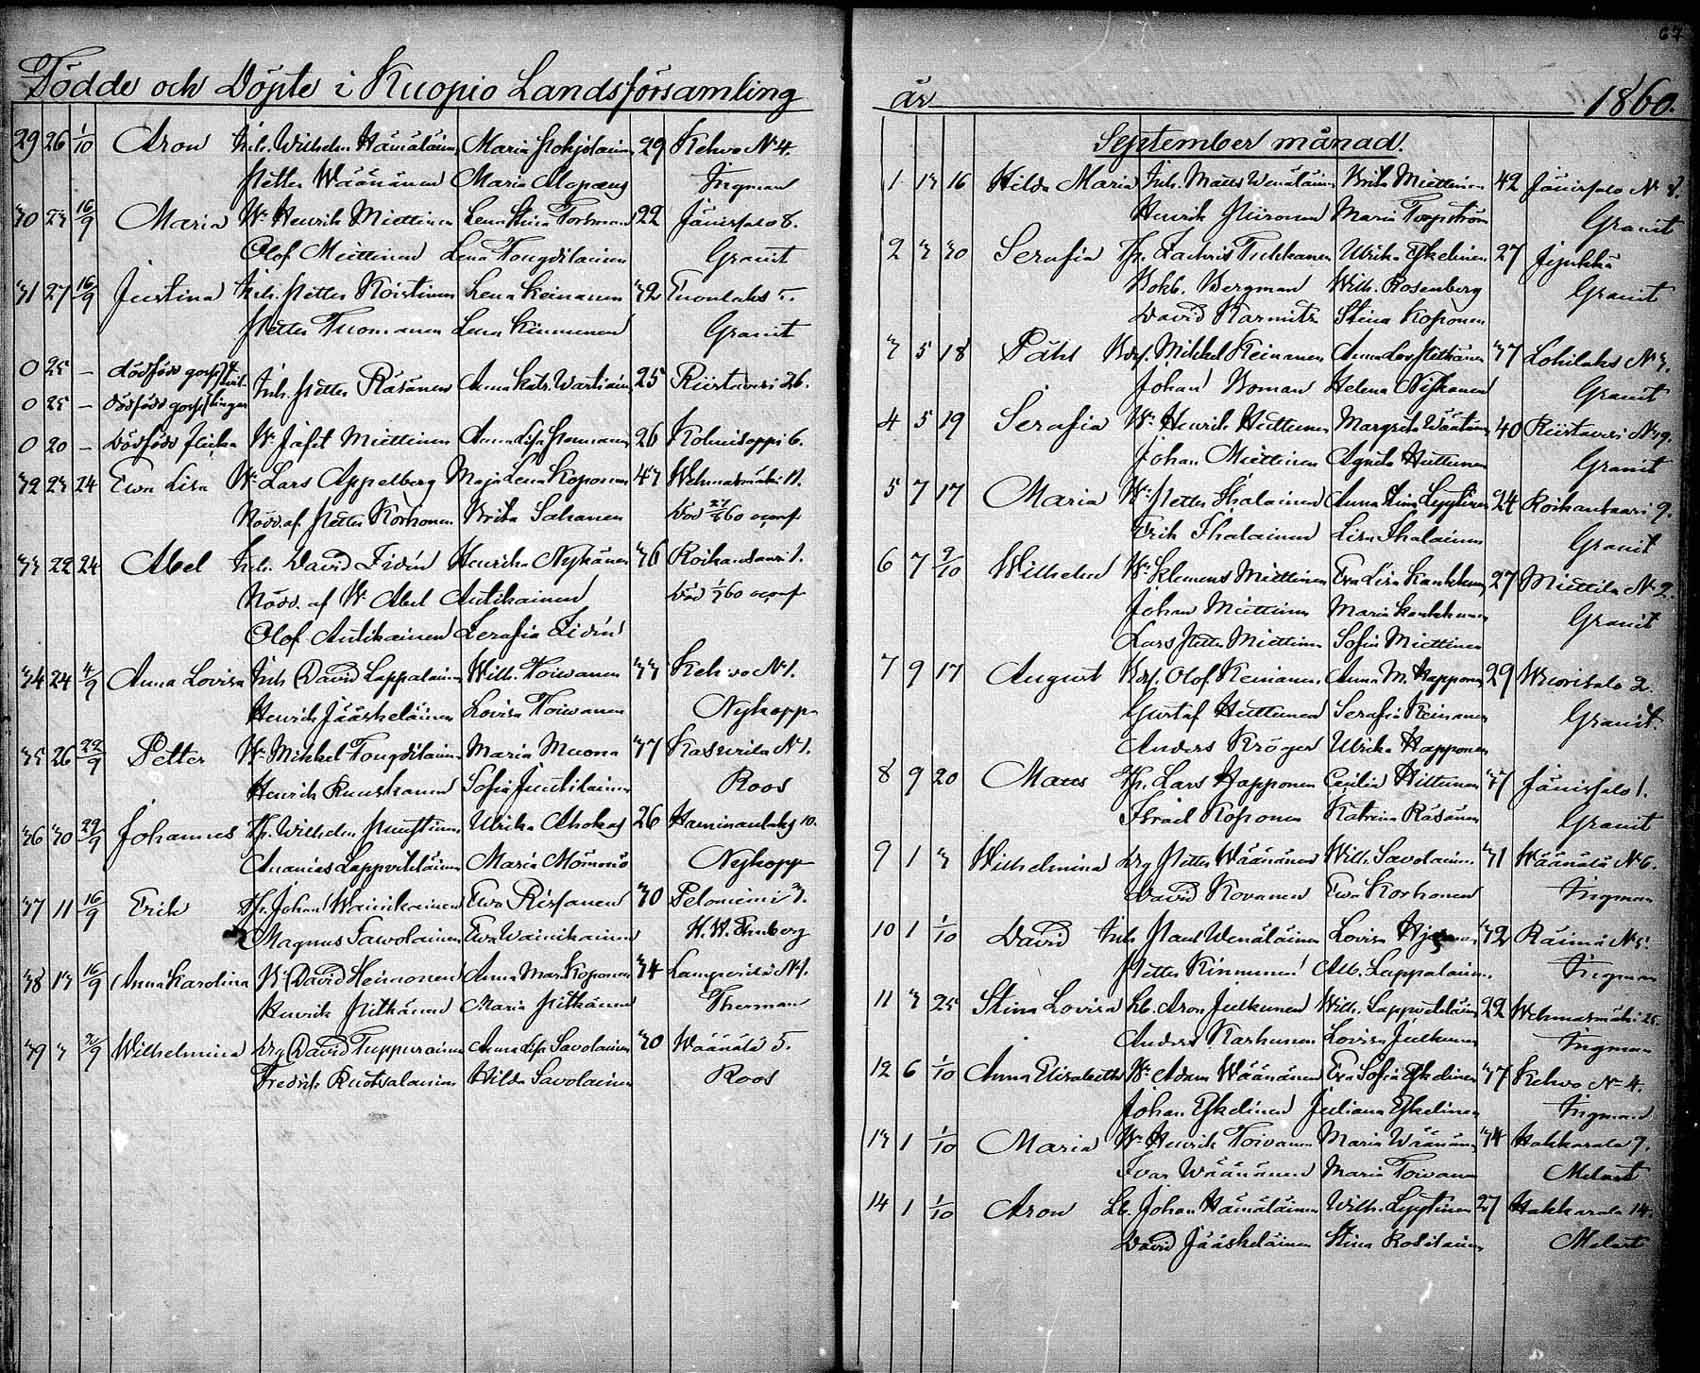 Födde och Döpte i Kuopio Landsförsamling
29 26 1/10 Aron Inh. Wilhelm Hämäläin Maria Pohjolain 29 Kehvo N:4.
Petter Wäänänen Maria Alopaeus Ingman
30 23 16/9 Maria W: Henrik Miettinen Lena Stina Forsman 22 Jänissalo 8.
Olof Miettinen Lena Granit
31 27 16/9 Justina Inh. Petter Röistinen Lena Keinanen 32 Enonlaks 5.
Petter Tuomanen Lena Kinnunen Granit
0 25 – dödfödt gosse
0 25 – dödfödt gosse Inh. Petter Räsänen Anna Katr. Wartiain 25 Riistavesi 26.
0 20 – Dödfödt flicka W: Jafet Miettinen Anna Lisa 26 Kolmisoppi 6.
32 23 24 Ewa Lisa W: Lars Appelberg Maja Lena Koponen 43 Wehmasmäki 11.
Nödd. af Petter Korhonen Brita Sahanen
33 22 24 Abel Inh. David Lidin Henrika Nykänen 36 Roikansaari 1.
Nödd. af W: Abel Antikainen
Olof Antikainen Serafia Lidin
34 24 4/9 Anna Lovisa Inh David Lappalain Wilh. Toiwanen 33 Kehvo N:1.
Henrik Jääskeläinen Lovisa Toiwanen Nykopp
35 26 22/9 Petter W: Mikkel Maria Muona 37 Kasurila N:1.
Henrik Ruuskanen Sofia Juutilainen Roos
36 30 29/9 Johannes Tp. Wilhelm Puustinen Ulrika Ahokas 26 Haminanlaks 10.
Ananias Lappveteläinen Maria Mömmö Nykopp
37 11 16/9 Erik Tp. Johan Wainikainen Ewa Rissanen 30 Pelonimi 3.
Magnus Sawolainen Ewa Wainikainen H. W.
38 13 16/9 Anna Karolina W: David Heinonen Anna Mar. Koponen 34 Lamperila N:1.
Henrik Pitkänen Maria Pitkänen Therman
39 3 2/9 Wilhelmina Drg David Tuppurainen Anna Lisa Savolainen 30 Wäänälä 5.
Fredrik Ruotsalainen Hilda Savolainen Roos
64
år 1860.
September månad.
1 13 16 Hilda Maria Inh. Matts Wenäläin Brita Miettinen 42 Jänissalo N:
Henrik Piironen Maria Granit
2 3 30 Serafia Tp. Zachris Tukkanen Ulrika Eskelinen 27
Bokh. Bergman Wilh. Rosenberg Granit
David Karmitz Stina Koponen
3 5 18 Påhl Bds. Mikkel Keinanen Anna Lov. Pitkänen 37 Lohilaks N:3.
Johan Boman Helena Niskanen Granit
4 5 19 Serafia W: Henrik Huttunen Margreta Väätäin 40 Riistavesi N:19.
Johan Miettinen Agneta Huttunen Granit
5 7 17 Maria W: Petter Ihalainen Anna Stina Lyytinen 24 Roikansaari 9.
Erik Ihalainen Lisa Ihalainen Granit
6 7 2/10 Wilhelm W: Klemens Miettinen Eva Lisa Kankkunen 27 Miettilä N:2.
Johan Miettinen Maria Kankkunen Granit
Lars Petter Miettinen Sofia Miettinen
7 9 17 August Bds. Olof Keinanen Anna M. Happonen 29 Wuorisalo 2.
Gustaf Huttunen Serafia Keinanen Granit.
Anders Kröger Ulrika Happonen
8 9 20 Matts Tp. Lars Happonen Cecilia Hiltunen 37 Jänissalo 1.
Israel Koponen Katrina Räsänen Granit
9 1 3 Wilhelmina Drg Petter Wäänänen Wilh. Savolainen 31 Wäänälä N:6.
David Kovanen Ewa Korhonen Ingman
10 1 1/10 David Inh Paul Wenäläinen Lovisa 32 Räimä N:5.
Petter Kinnunen Alb. Lappalainen. Ingman
11 3 25 Stina Lovisa Lb. Aron Julkunen Wilh. Lappveteläin 22 Wehmasmäki 25.
Anders Karhunen Lovisa Julkunen Ingman
12 6 1/10 Anna Elisabeth W: Adam Wäänänen Eva Sofia Eskelinen 37 Kehvo N:4.
Johan Eskelinen Juliana Eskelinen Ingman
13 1 1/10 Maria W: Henrik Toivanen Maria Wäänänen 34 Hakkarala 7.
Ivar Wäänänen Maria Toivanen Melart
14 1 1/10 Aron Lb. Johan Hämäläinen Wilh. Lyytinen 27 Hakkarala 14.
David Jääskeläinen Stina Melart